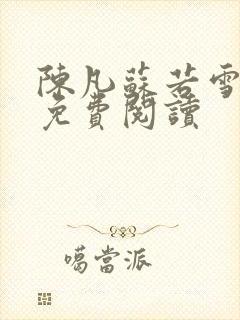 陳凡蘇若雪
免費閱讀
噶當派